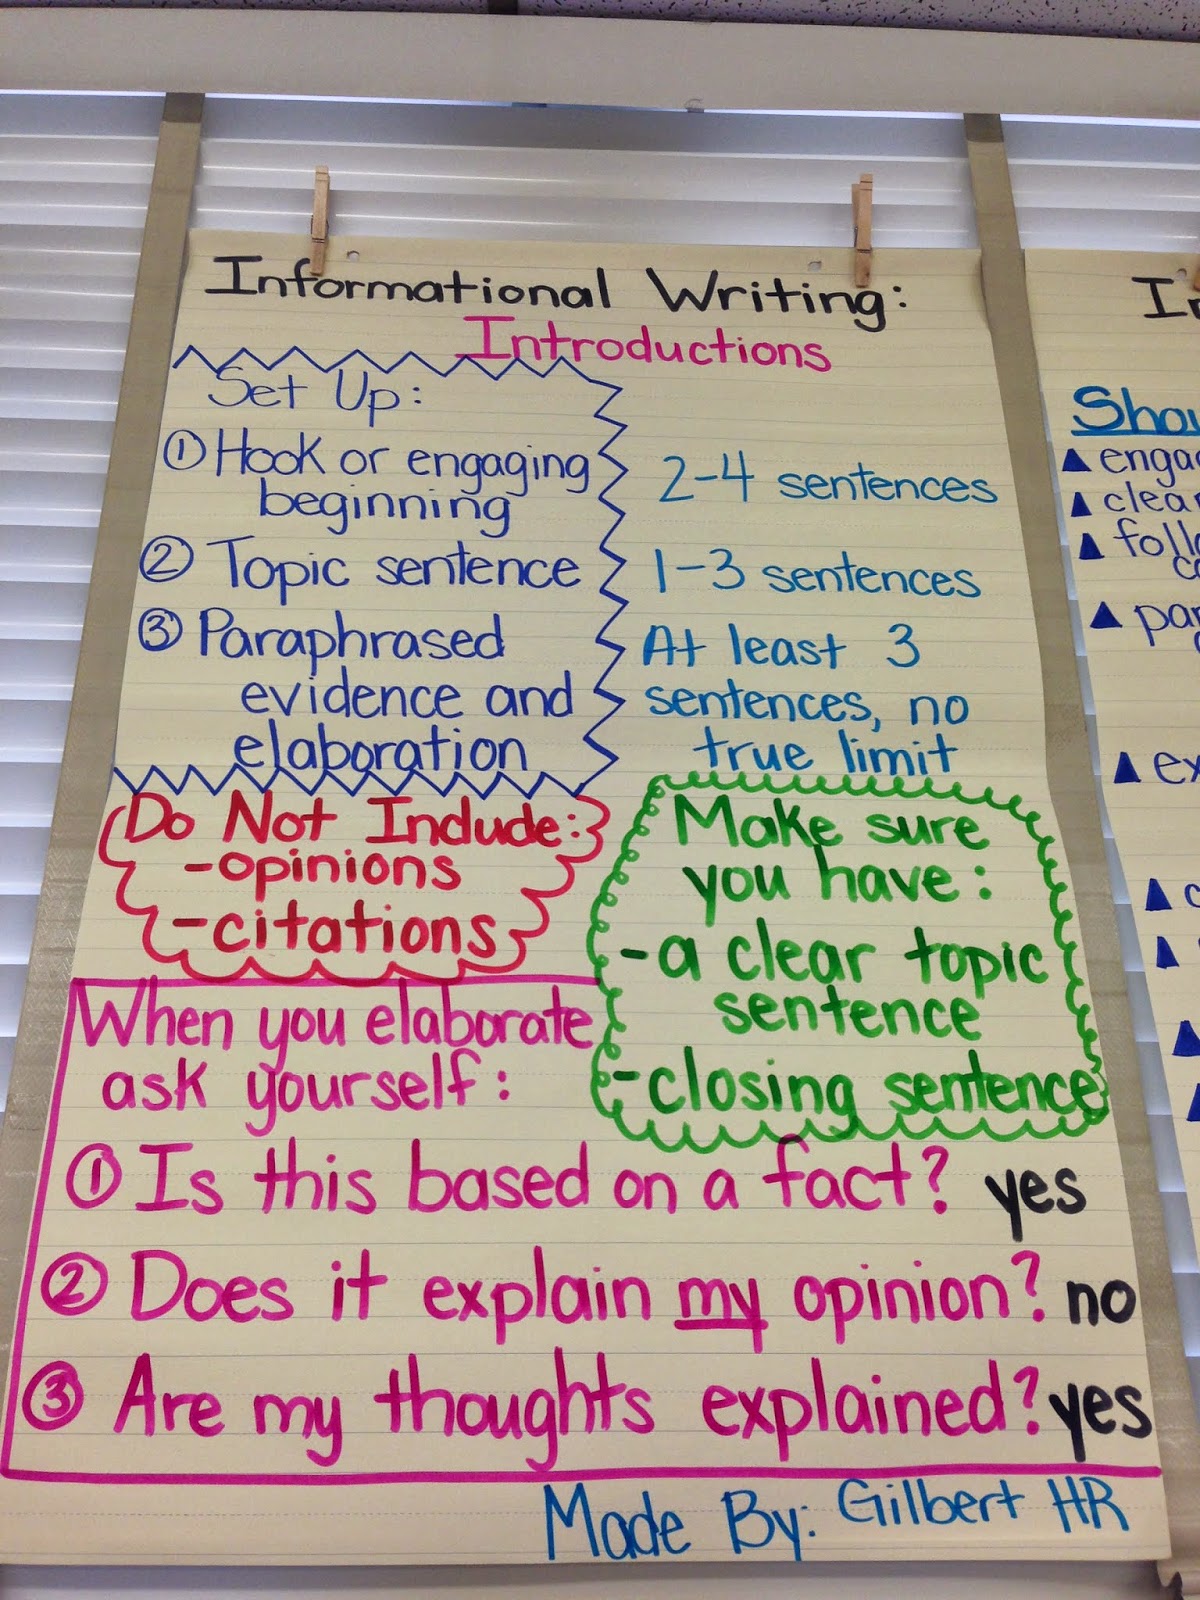 Informational Writing:
Introductions
Set Up:
① Hook or engaging
beginning
2-4 sentences
② Topic sentence
1-3 sentences
③ Paraphrased
evidence and
elaboration
At least 3
sentences, no
true limit
Do Not Include:
-opinions
-citations
Make sure
you have:
-a clear topic
sentence
-closing sentence
When you elaborate
ask yourself:
① Is this based on a fact? yes
② Does it explain my opinion? no
③ Are my thoughts explained? yes
Made By: Gilbert HR